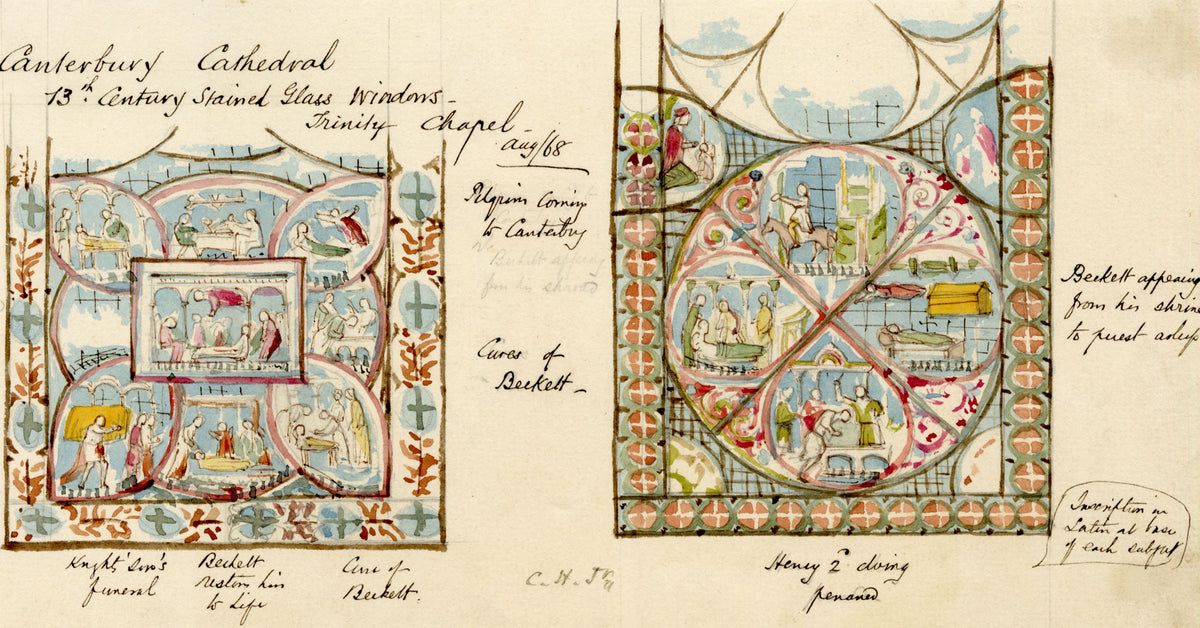 Canterbury Cathedral
13th Century Stained Glass Windows -
Trinity Chapel -
Aug/68
Pilgrim Coming
to Canterbury
Beckett appearing
from his shrine
Cures of
Beckett -
Beckett appearing
from his shrine
to priest asleep
Inscription in
Latin at base
of each subject
Knight's son's
funeral
Beckett
restores him
to Life
Cure of
Beckett.
C. H.
Henry 2d doing
penance